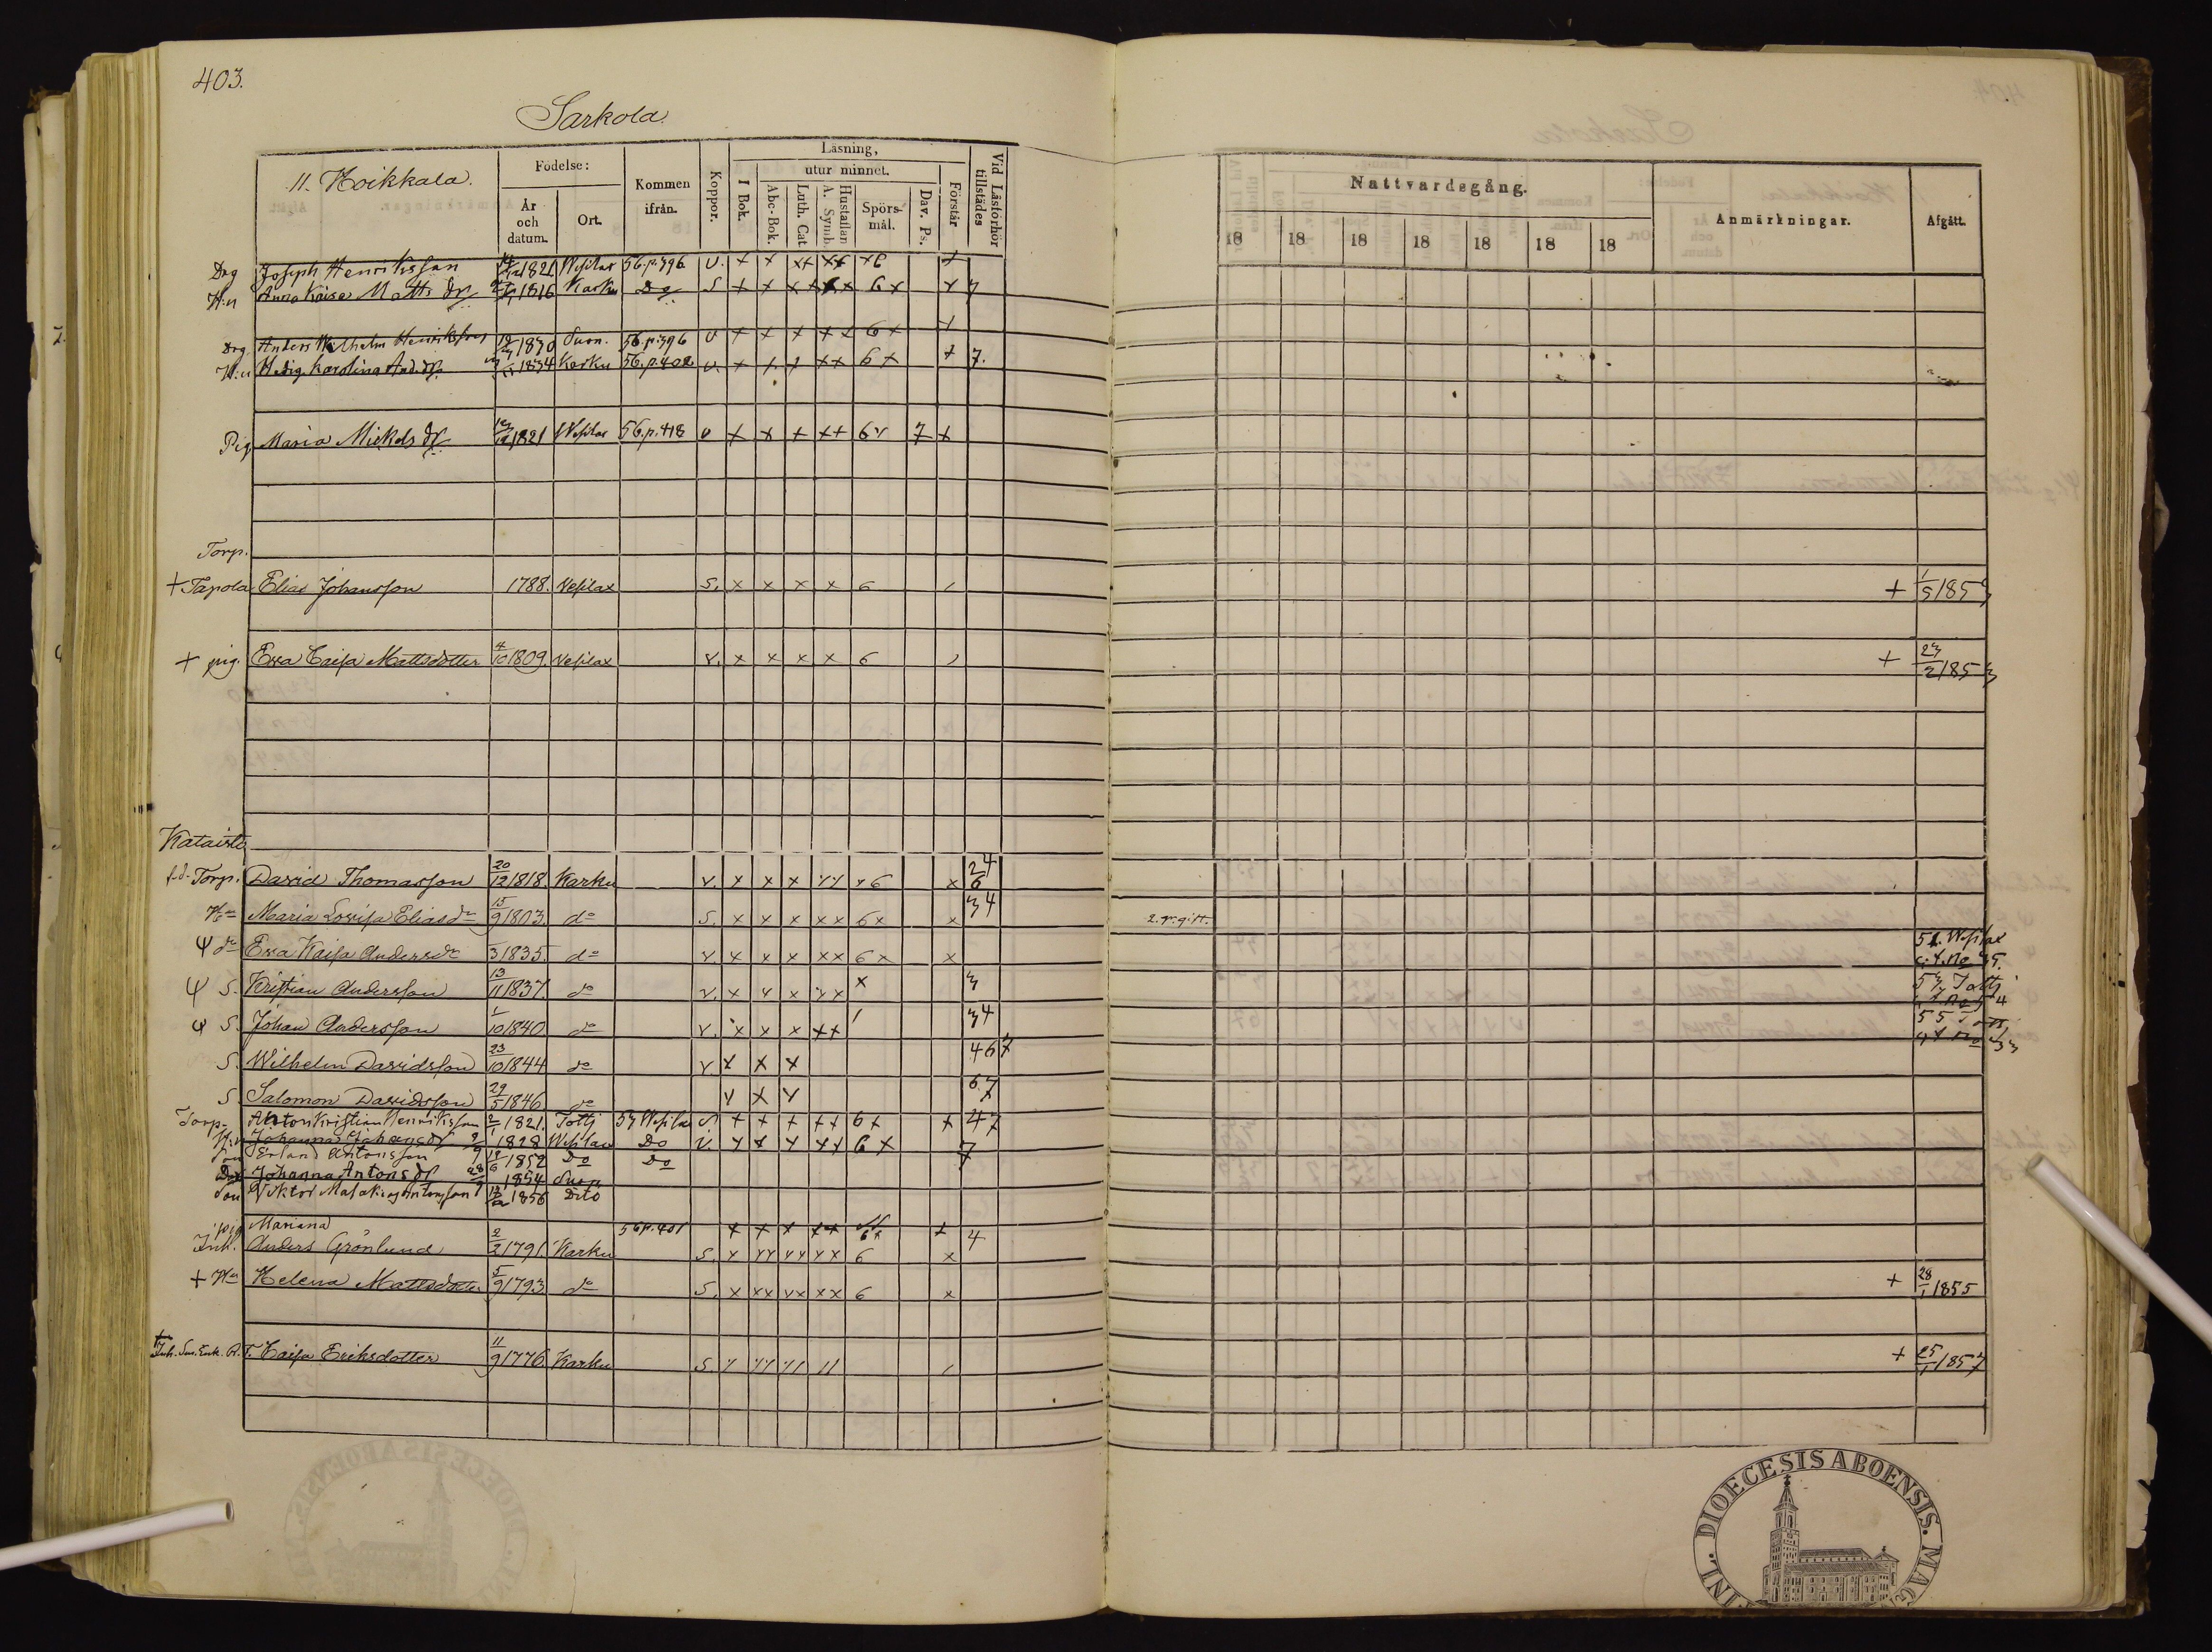 403.
Sarkola
11. Koikkala.
Födelse:
År och datum.
Ort.
Kommen ifrån.
Koppor.
Läsning,
I Bok.
utur minnet.
Abc-Bok.
Luth. Cat
Hustaflan A. Symb.
Spörs-mål.
Dav. Ps.
Förstår
Vid Läsförhör tillstädes
Nattvardsgång.
18 18 18 18 18 18 18
Anmärkningar.
Afgått.
Drg Joseph Henriksson 1821 Wesilax 56.p.396 v. + x xx xx x6 +
H:u Anna Kaisa Matts dr 1816 Karku Do S + x x 6 x x 7
Drg. Anders Wilhelm Henriksson 1830 Suon. 56.p.396 v + x x x x 6 + +
H:u Hedvig Karolina And. dr 1834 Karku 56.p.402 v. + x x x x 6 x + 7.
Pig Maria Mickels dr 1821 Wesilax 56.p.418 v x x + x+ 6 x 7 x
Torp.
+ Tapola Elias Johansson 1788. Vesilax S. x x x x 6 / + 1/5 1853
+ pig. Ewa Caisa Mattsdotter 4/10 1809. Vesilax v. x x x x 6 + 23/2 1853
Kataisto
f.d. Torp. David Thomasson 20/12 1818. Karku v. x x x x x x 6 x 2 4 6
Hu Maria Lovisa Eliasdr 15/9 1803. do S. x x x x x 6 x x 3 4 2. gr. gift.
Ψ dr Ewa Kaisa Andersdr 3 1835. do v x x x x x 6 x x 51. Wesilax
Ψ S. Kristian Andersson 13/11 1837. do v. x x x x x x 3 53 Tottj
Ψ S. Johan Andersson 1/10 1840 do v. x x x x x / 3 4 55 Tottj
S. Wilhelm Davidsson 23/10 1844 do v x x x 4 6 7
S. Salomon Davidsson 29/5 1846. do x x x 6 7
Torp. Anton Kristian Henriksson 2/1 1821. Tottj 53 Wesilax v. + + + + + 6 + + 4 7
H:u Johanna Johans dr 1828 Wesilax Do v. x x x x x 6 x 7
Son Erland Antonsson 1852 Do Do
Johanna Antons dr 1854 Suon
Son Viktor Antonsson 1856 Dito
pig Mariana 56p.401 + + x ++ 6x + 4
Inh. Anders Grönlund 2/2 1791. Karku S. x xx xx xx 6 x
+ Hu Helena Mattsdotter 5/9 1793. do S. x xx xx xx 6 x + 28/1 1855
+ Inh. Caisa Eriksdotter 11/9 1776 Karku S. + 25/1 1857
DIOECESIS ABOENSIS. MAG